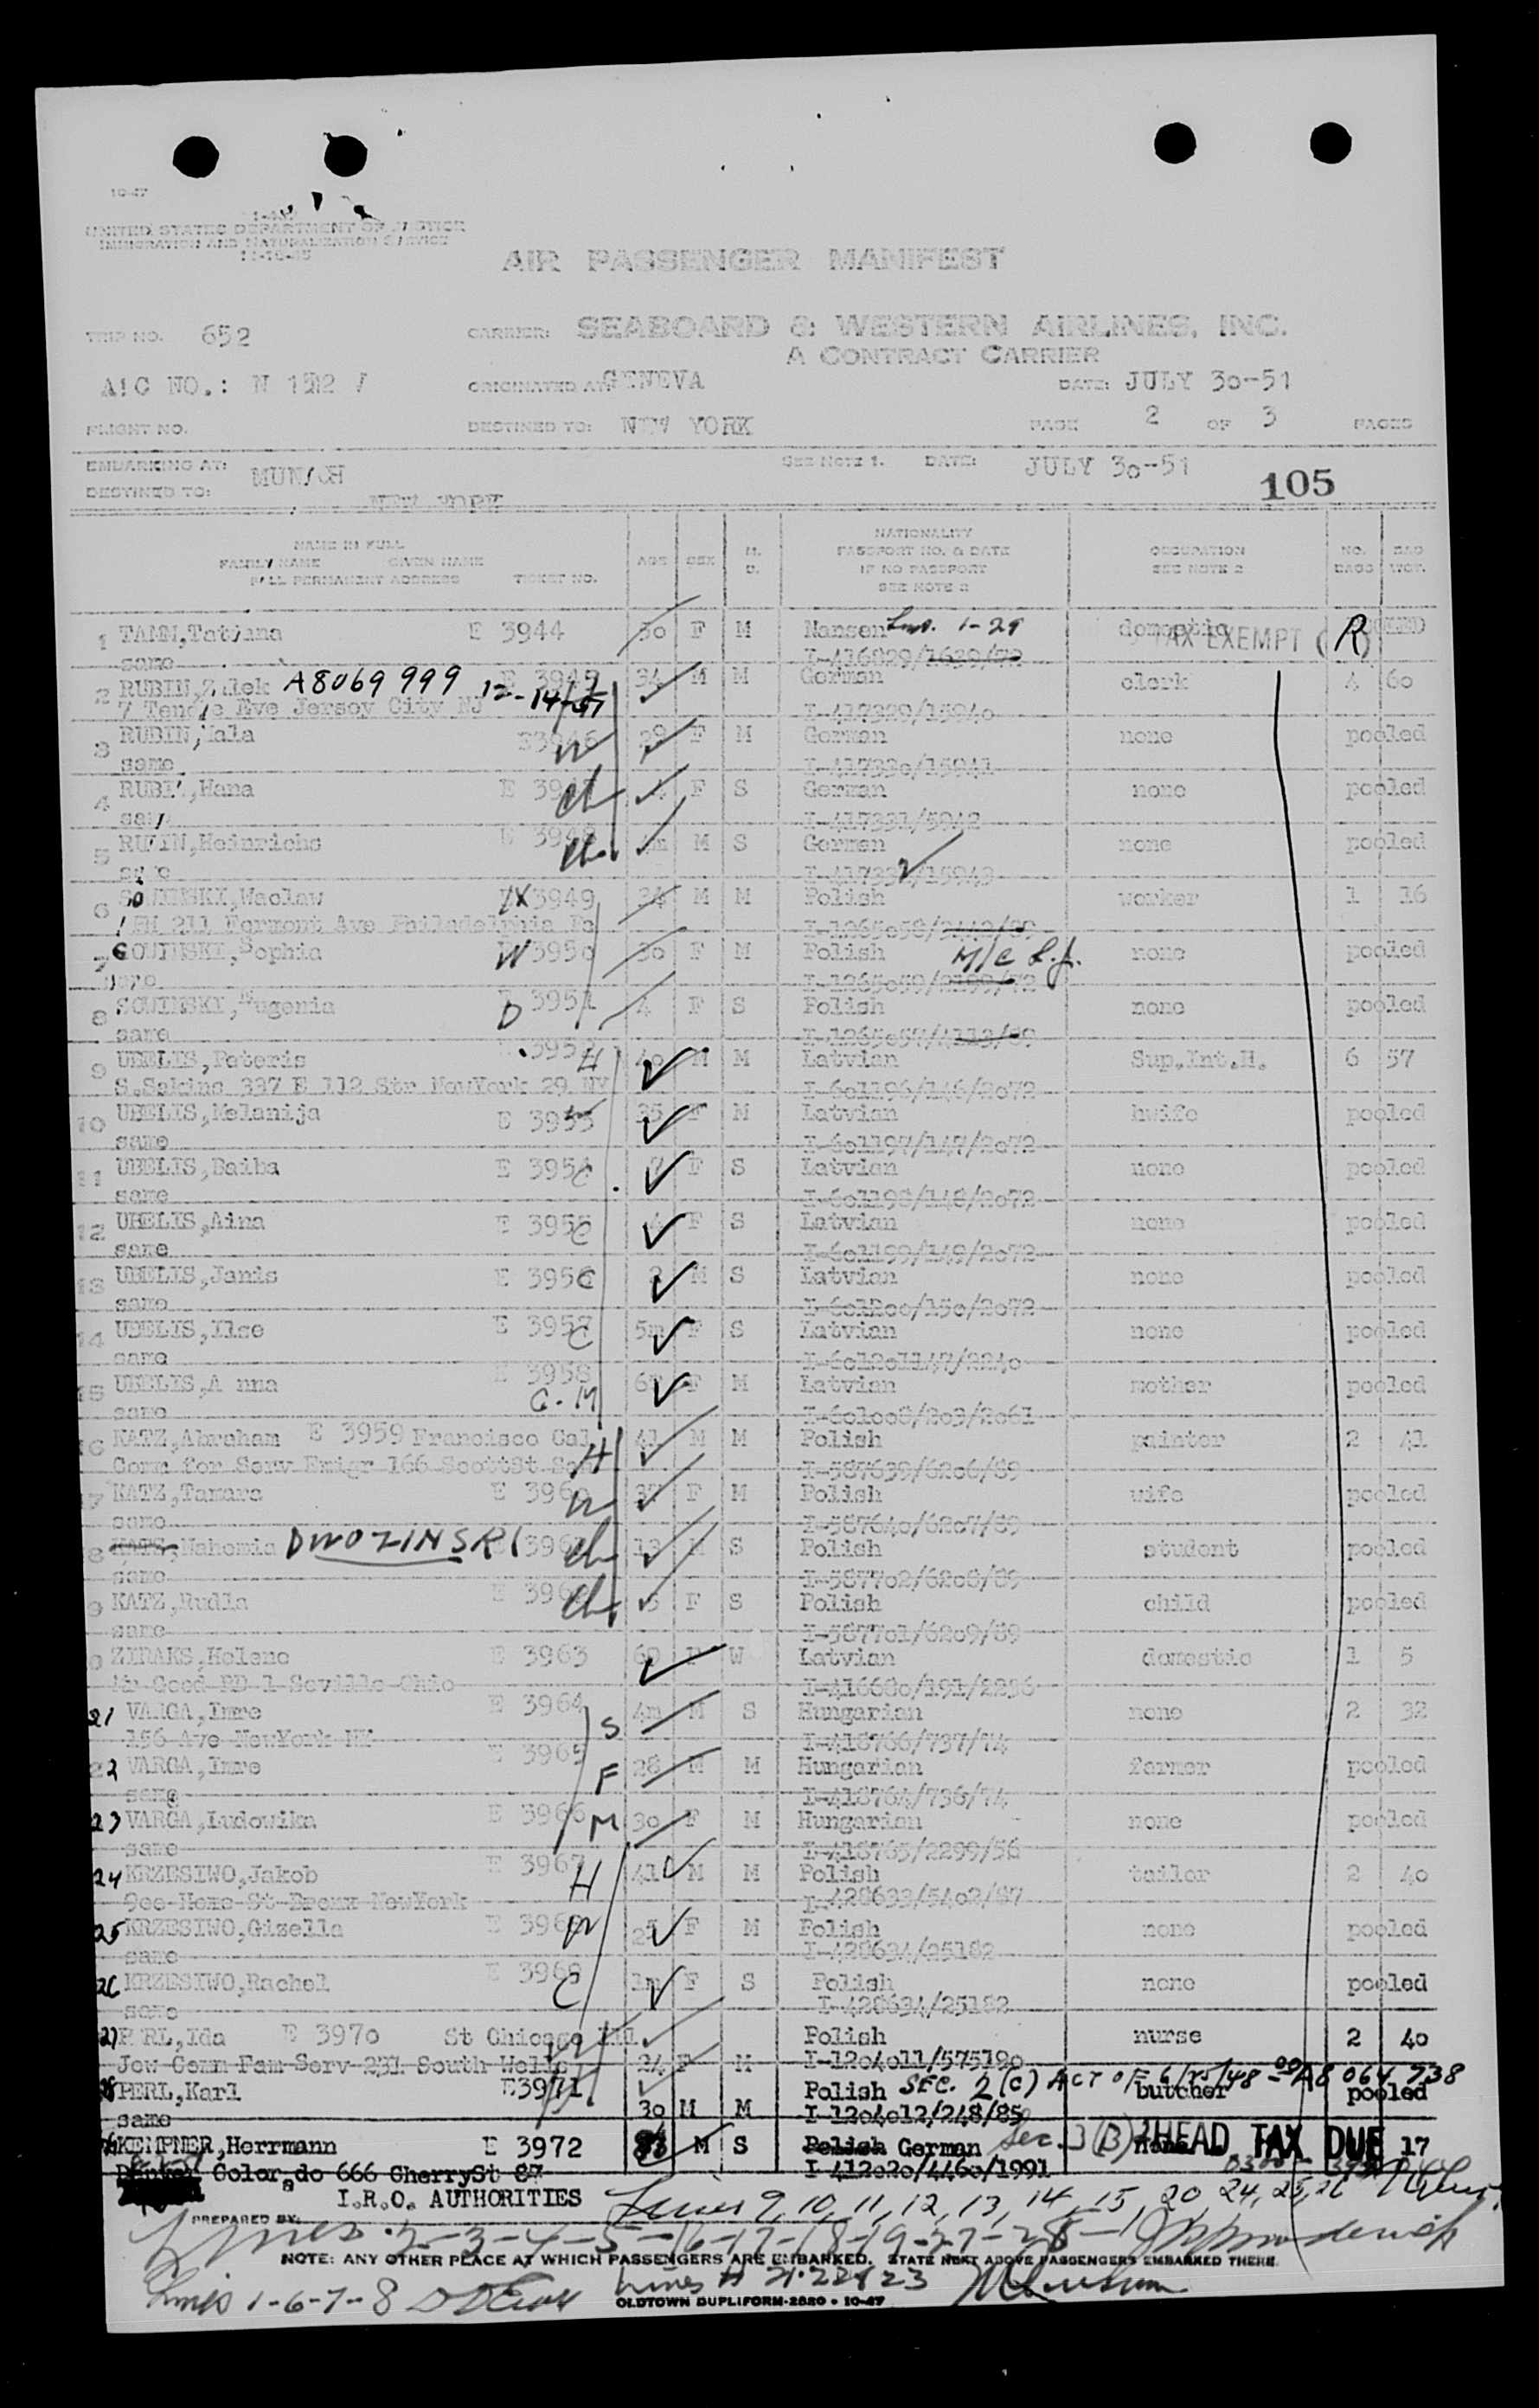 10-47
UNITED STATES DEPARTMENT OF JUSTICE
IMMIGRATION AND NATURALIZATION SERVICE
AIR PASSENGER MANIFEST
TRIP NO. 652 CARRIER: SEABOARD & WESTERN AIRLINES, INC.
A CONTRACT CARRIER
A!C NO.: N ORIGINATED AT: GENEVA DATE: JULY 30-51
FLIGHT NO. DESTINED TO: NEW YORK PAGE 2 OF 3 PAGES
EMBARKING AT: MUNICH SEE NOTE 1. DATE: JULY 30-51
DESTINED TO: NEW YORK 105
NAME IN FULL NATIONALITY
FAMILY NAME GIVEN NAME AGE SEX M. PASSPORT NO. & DATE OCCUPATION NO. BAG
FULL PERMANENT ADDRESS TICKET NO. D. IF NO PASSPORT SEE NOTE 2 BAGS WGT.
SEE NOTE 2
1 TAMM,Tatiana E 3944 30 F M Nansen 1-29 domestic TAX EXEMPT (R)
same I-416829/1639/72
2 RUBIN, A8069 999 E 3945 34 M M German clerk 4 60
7 Ave Jersey City NJ 12-14-51 I-417329/15940
3 RUBIN, E3946 W 29 F M German none pooled
same I-417330/15941
4 RUBIN,Hana E 3947 ch F S German none pooled
same I-417331/5942
5 RUBIN,Heinrichs E 3948 ch. M S German none pooled
same I-417332/15943
6 SOWINSKY,Waclaw 3949 34 M M Polish worker 1 16
211 Ave Philadelphia Pa I-1265058/
7 SOUINSKI,Sophia W 3950 30 F M Polish M/c none pooled
same I-1265059/2199/72
8 SOUINSKI,Eugenia D 3951 4 F S Polish none pooled
same I-1265057/
9 UBELIS,Peteris 3952 H 40 M M Latvian Sup.Int.H. 6 57
S.Sskins 337 E 112 Str NewYork 29 NY I-601196/146/2072
10 UBELIS,Melanija E 3953 35 F M Latvian hwife pooled
same I-601197/147/2072
11 UBELIS,Baiba E 3954 C 7 F S Latvian none pooled
same I-601198/148/2072
12 UBELIS,Aina E 3955 C 4 F S Latvian none pooled
same I-601199/149/2072
13 UBELIS,Janis E 3956 C 2 M S Latvian none pooled
same I-601200/150/2072
14 UBELIS,Ilse E 3957 C 5m F S Latvian none pooled
same I-6012011147/2240
15 UBELIS,A nna E 3958 G.M F M Latvian mother pooled
same I-601008/203/2061
16 KATZ,Abraham E 3959 Francisco Cal H 41 M M Polish painter 2 41
Comm for Serv Emigr 166 ScottSt San I-587639/6206/89
17 KATZ,Tamara E 3960 W F M Polish wife pooled
same I-587640/6207/89
18 KATZ,Nahomia DWOZINSKI 3961 ch 13 S Polish student pooled
same I-587702/6208/89
19 KATZ,Rudla E 3962 ch F S Polish child pooled
same I-587701/6209/89
20 ZIRAKS,Helene E 3963 F W Latvian domestic 1 5
Mr Good RD 1 Seville Ohio I-416680/191/2236
21 VARGA,Imre E 3964 S 4m M S Hungarian none 2 32
156 Ave NewYork NY I-418766/737/74
22 VARGA,Imre E 3965 F 28 M M Hungarian farmer pooled
same I-418764/736/74
23 VARGA,Ludowika E 3966 M 30 F M Hungarian none pooled
same I-418765/2299/56
24 KRZESIWO,Jakob E 3967 H 41 M M Polish tailor 2 40
900 Home St Bronx NewYork I-428633/5402/87
25 KRZESIWO,Gizella E 3968 W F M Polish none pooled
same I-428634/25182
26 KRZESIWO,Rachel E 3969 C 1m F S Polish none pooled
same I-428634/25182
27 PERL,Ida E 3970 St Chicago Ill. Polish nurse 2 40
Jew Comm Fam Serv 231 South Wells 24 F M I-1204011/575190
28 PERL,Karl E3971 Polish SEC. 2 (c) ACT OF 6/25/48 A8 064 938 butcher pooled
same 30 M M I-1204012/248/85
KEMPNER,Herrmann E 3972 M S Polish German Sec. 3(B) none HEAD TAX DUE 17
Denver Color,do 666 CherrySt I-412020/4460/1991
I.R.O. AUTHORITIES Lines 9, 10, 11, 12, 13, 14, 15, 20, 24, 25, 26
PREPARED BY:
Lines 2-3-4-5-16-17-18-19-27-28-
NOTE: ANY OTHER PLACE AT WHICH PASSENGERS ARE EMBARKED. STATE NEXT ABOVE PASSENGERS EMBARKED THERE.
Lines 1-6-7-8 Lines # 21-22&23
OLDTOWN DUPLIFORM-2820 • 10-47